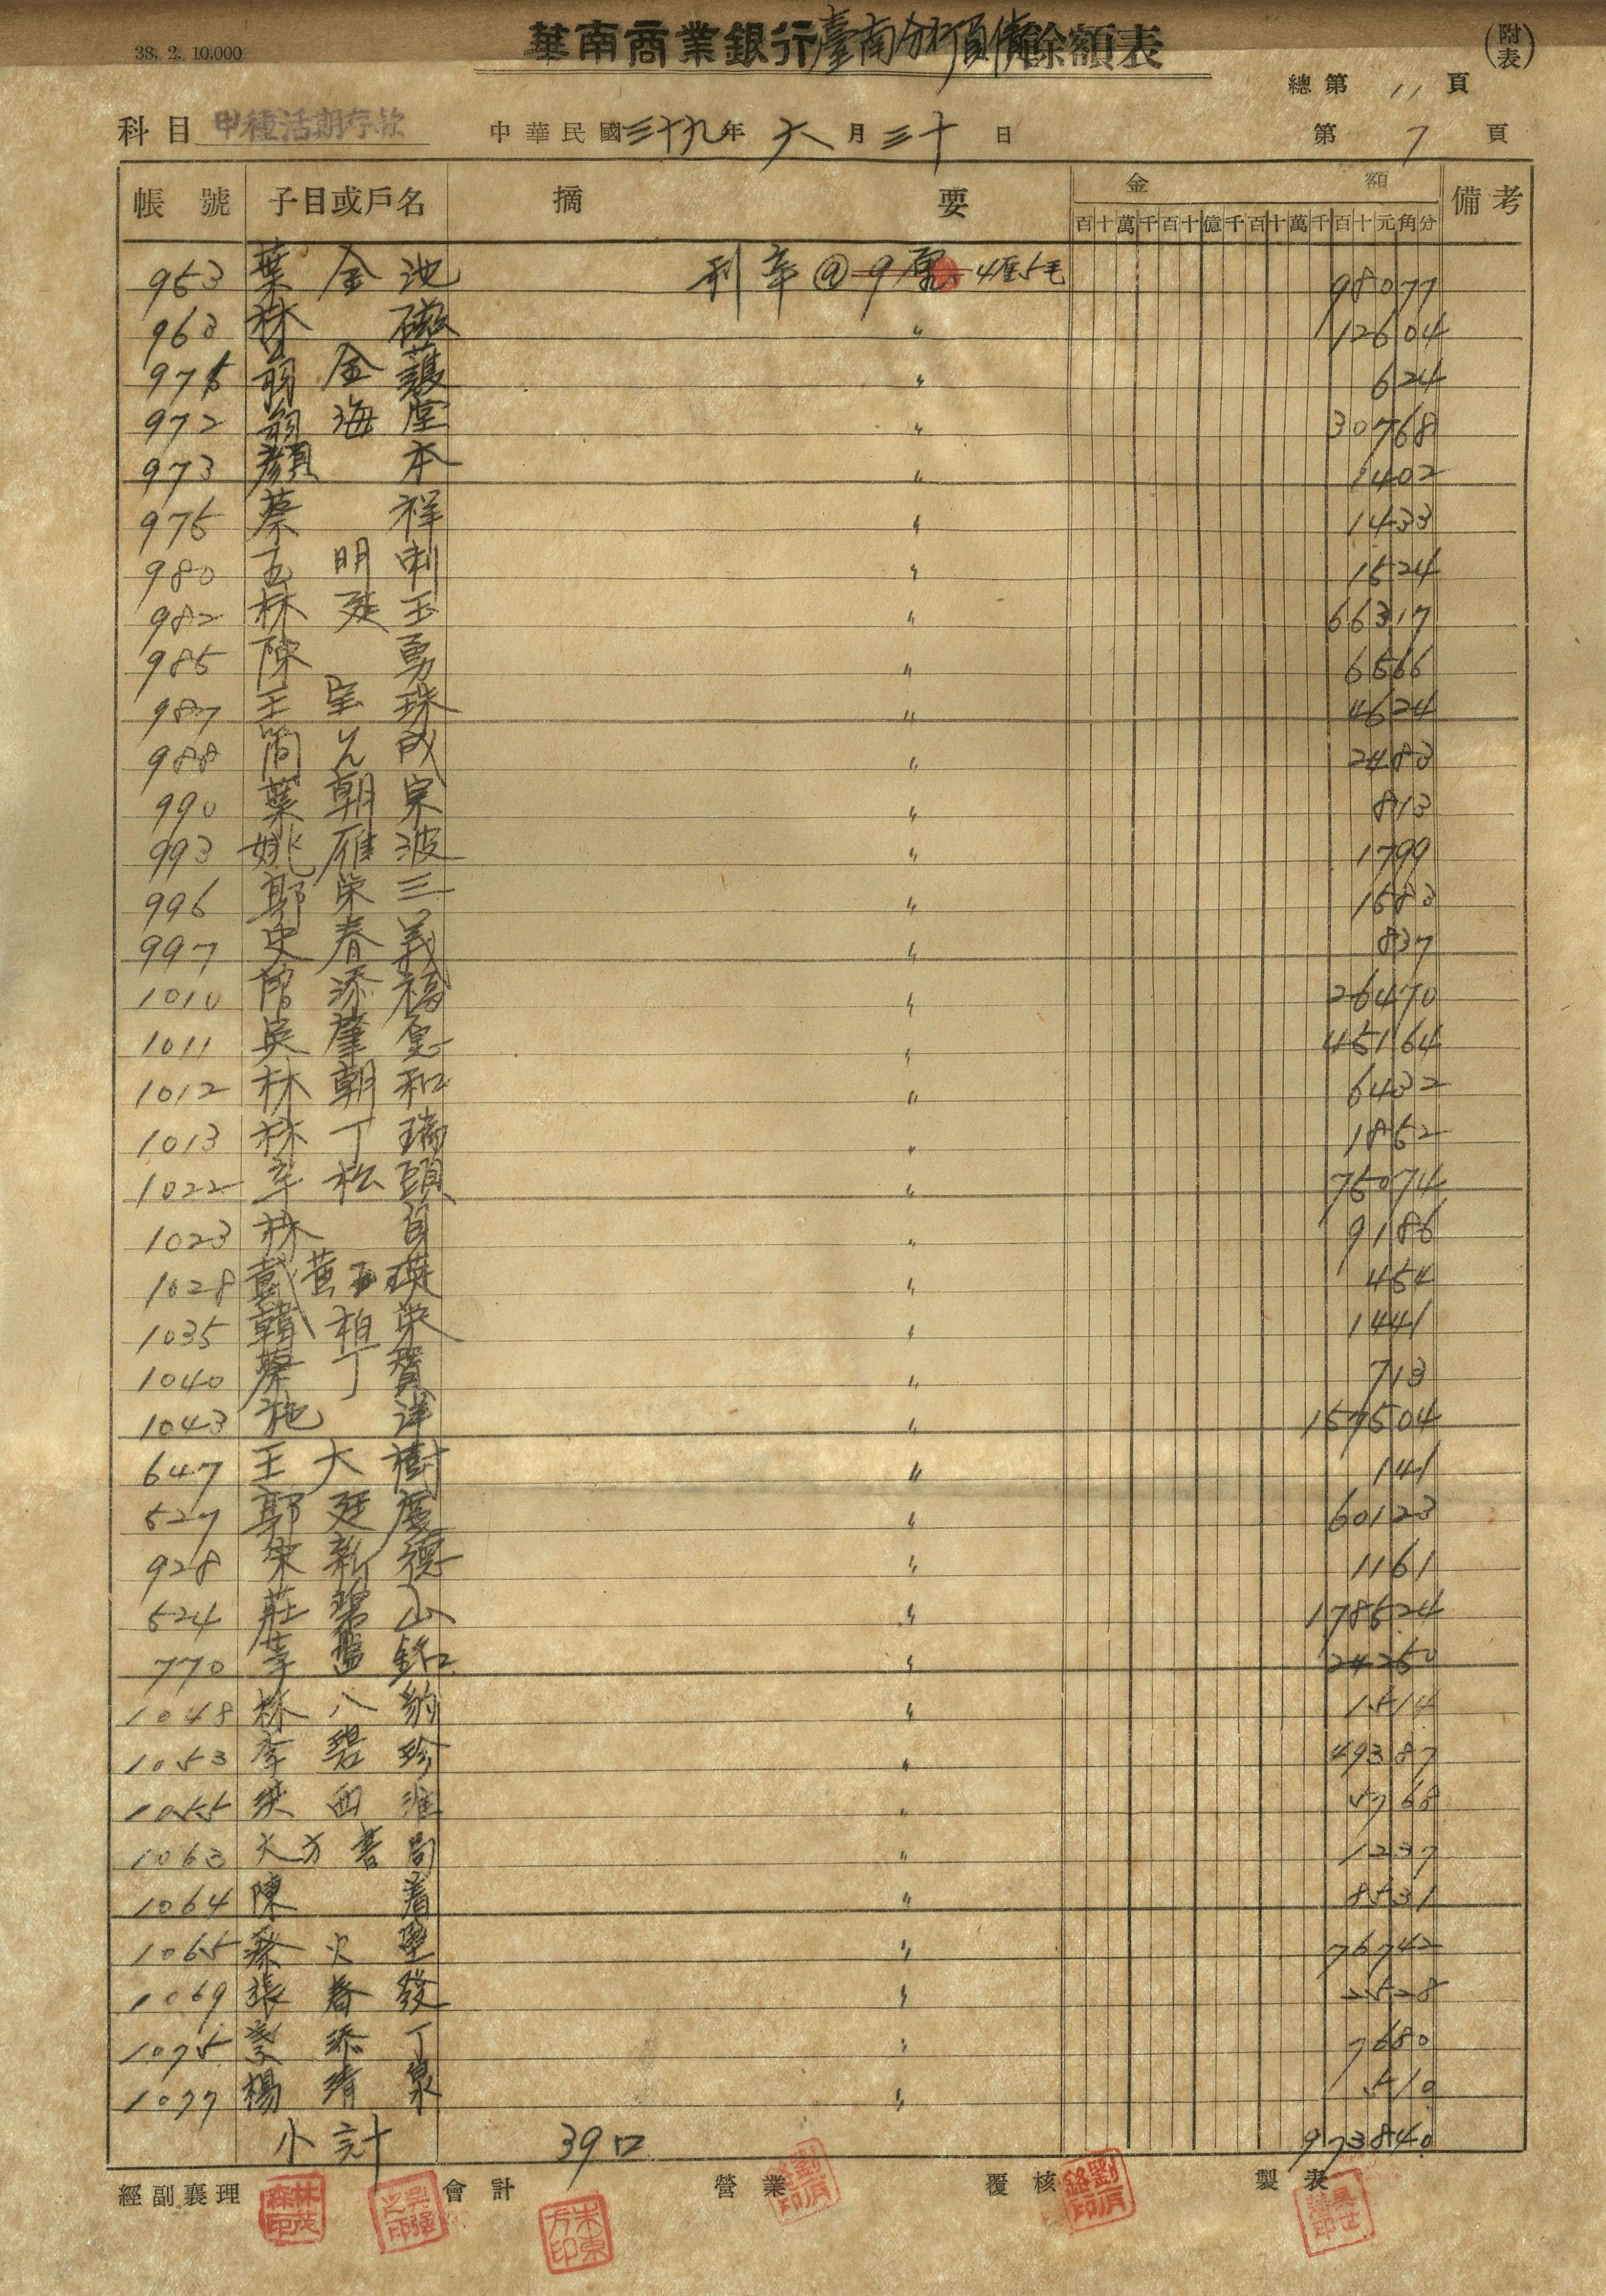 38. 2. 10.000
華南商業銀行臺南分行負債餘額表
(附表)
總第 11 頁
科目 甲種活期存款 中華民國三十九年六月三十日 第 7 頁
帳號 子目或戶名 摘要 金額 備考
百十萬千百十億千百十萬千百十元角分
953 葉金池 利率@9厘 4厘5毛 98077
963 林 〃 12604
翁金 〃 624
972 翁海堂 〃 30768
973 顏本 〃 1402
975 蔡祥 〃 1433
980 明 〃 1524
982 林廷玉 〃 66317
985 陳勇 〃 6566
987 王宝珠 〃 4624
988 簡成 〃 2483
990 葉朝宗 〃 813
993 姚雁波 〃 1799
996 郭栄三 〃 1583
997 史春義 〃 837
1010 添福 〃 26470
1011 吳肇 〃 45164
1012 林朝和 〃 6432
1013 林丁瑞 〃 1852
1022 辛松頭 〃 75074
1023 林 〃 9186
1028 戴黃玉瑛 〃 454
1035 韓柏栄 〃 1441
1040 蔡丁賀 〃 713
1043 施洋 〃 157504
647 王大樹 〃 141
527 郭廷慶 〃 60123
928 宋新德 〃 1161
524 莊碧山 〃 178524
770 李盛銘 〃 24250
1048 林八豹 〃 1514
1053 李碧珍 〃 49387
1055 西淮 〃 5768
1063 大方書局 〃 1237
1064 陳着 〃 8531
1065 蔡火 〃 76742
1069 張春發 〃 2528
1075 蔡添丁 〃 7680
1077 楊清泉 〃 510
小計 39口 973840
經副襄理 會計 營業 覆核 製表
林茂森印
朱東方印